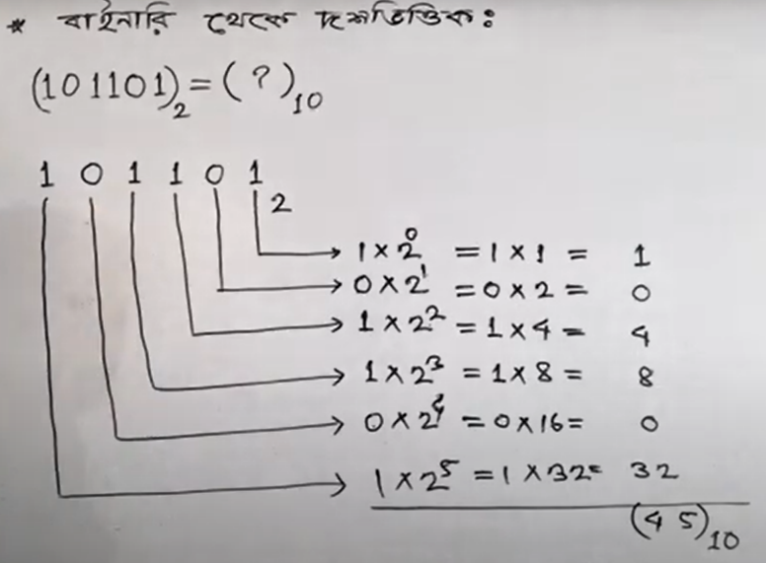 * বাইনারি থেকে দশভিত্তিক:
(101101)₂ = (?)₁₀
1 0 1 1 0 1 ₂
1 × 2⁰ = 1 × 1 = 1
0 × 2¹ = 0 × 2 = 0
1 × 2² = 1 × 4 = 4
1 × 2³ = 1 × 8 = 8
0 × 2⁴ = 0 × 16 = 0
1 × 2⁵ = 1 × 32 = 32
(45)₁₀